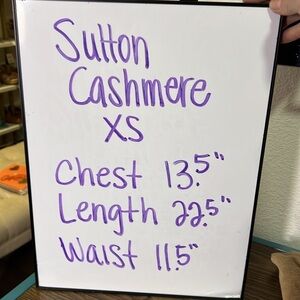 Sutton
Cashmere
XS
Chest 13.5"
Length 22.5"
Waist 11.5"